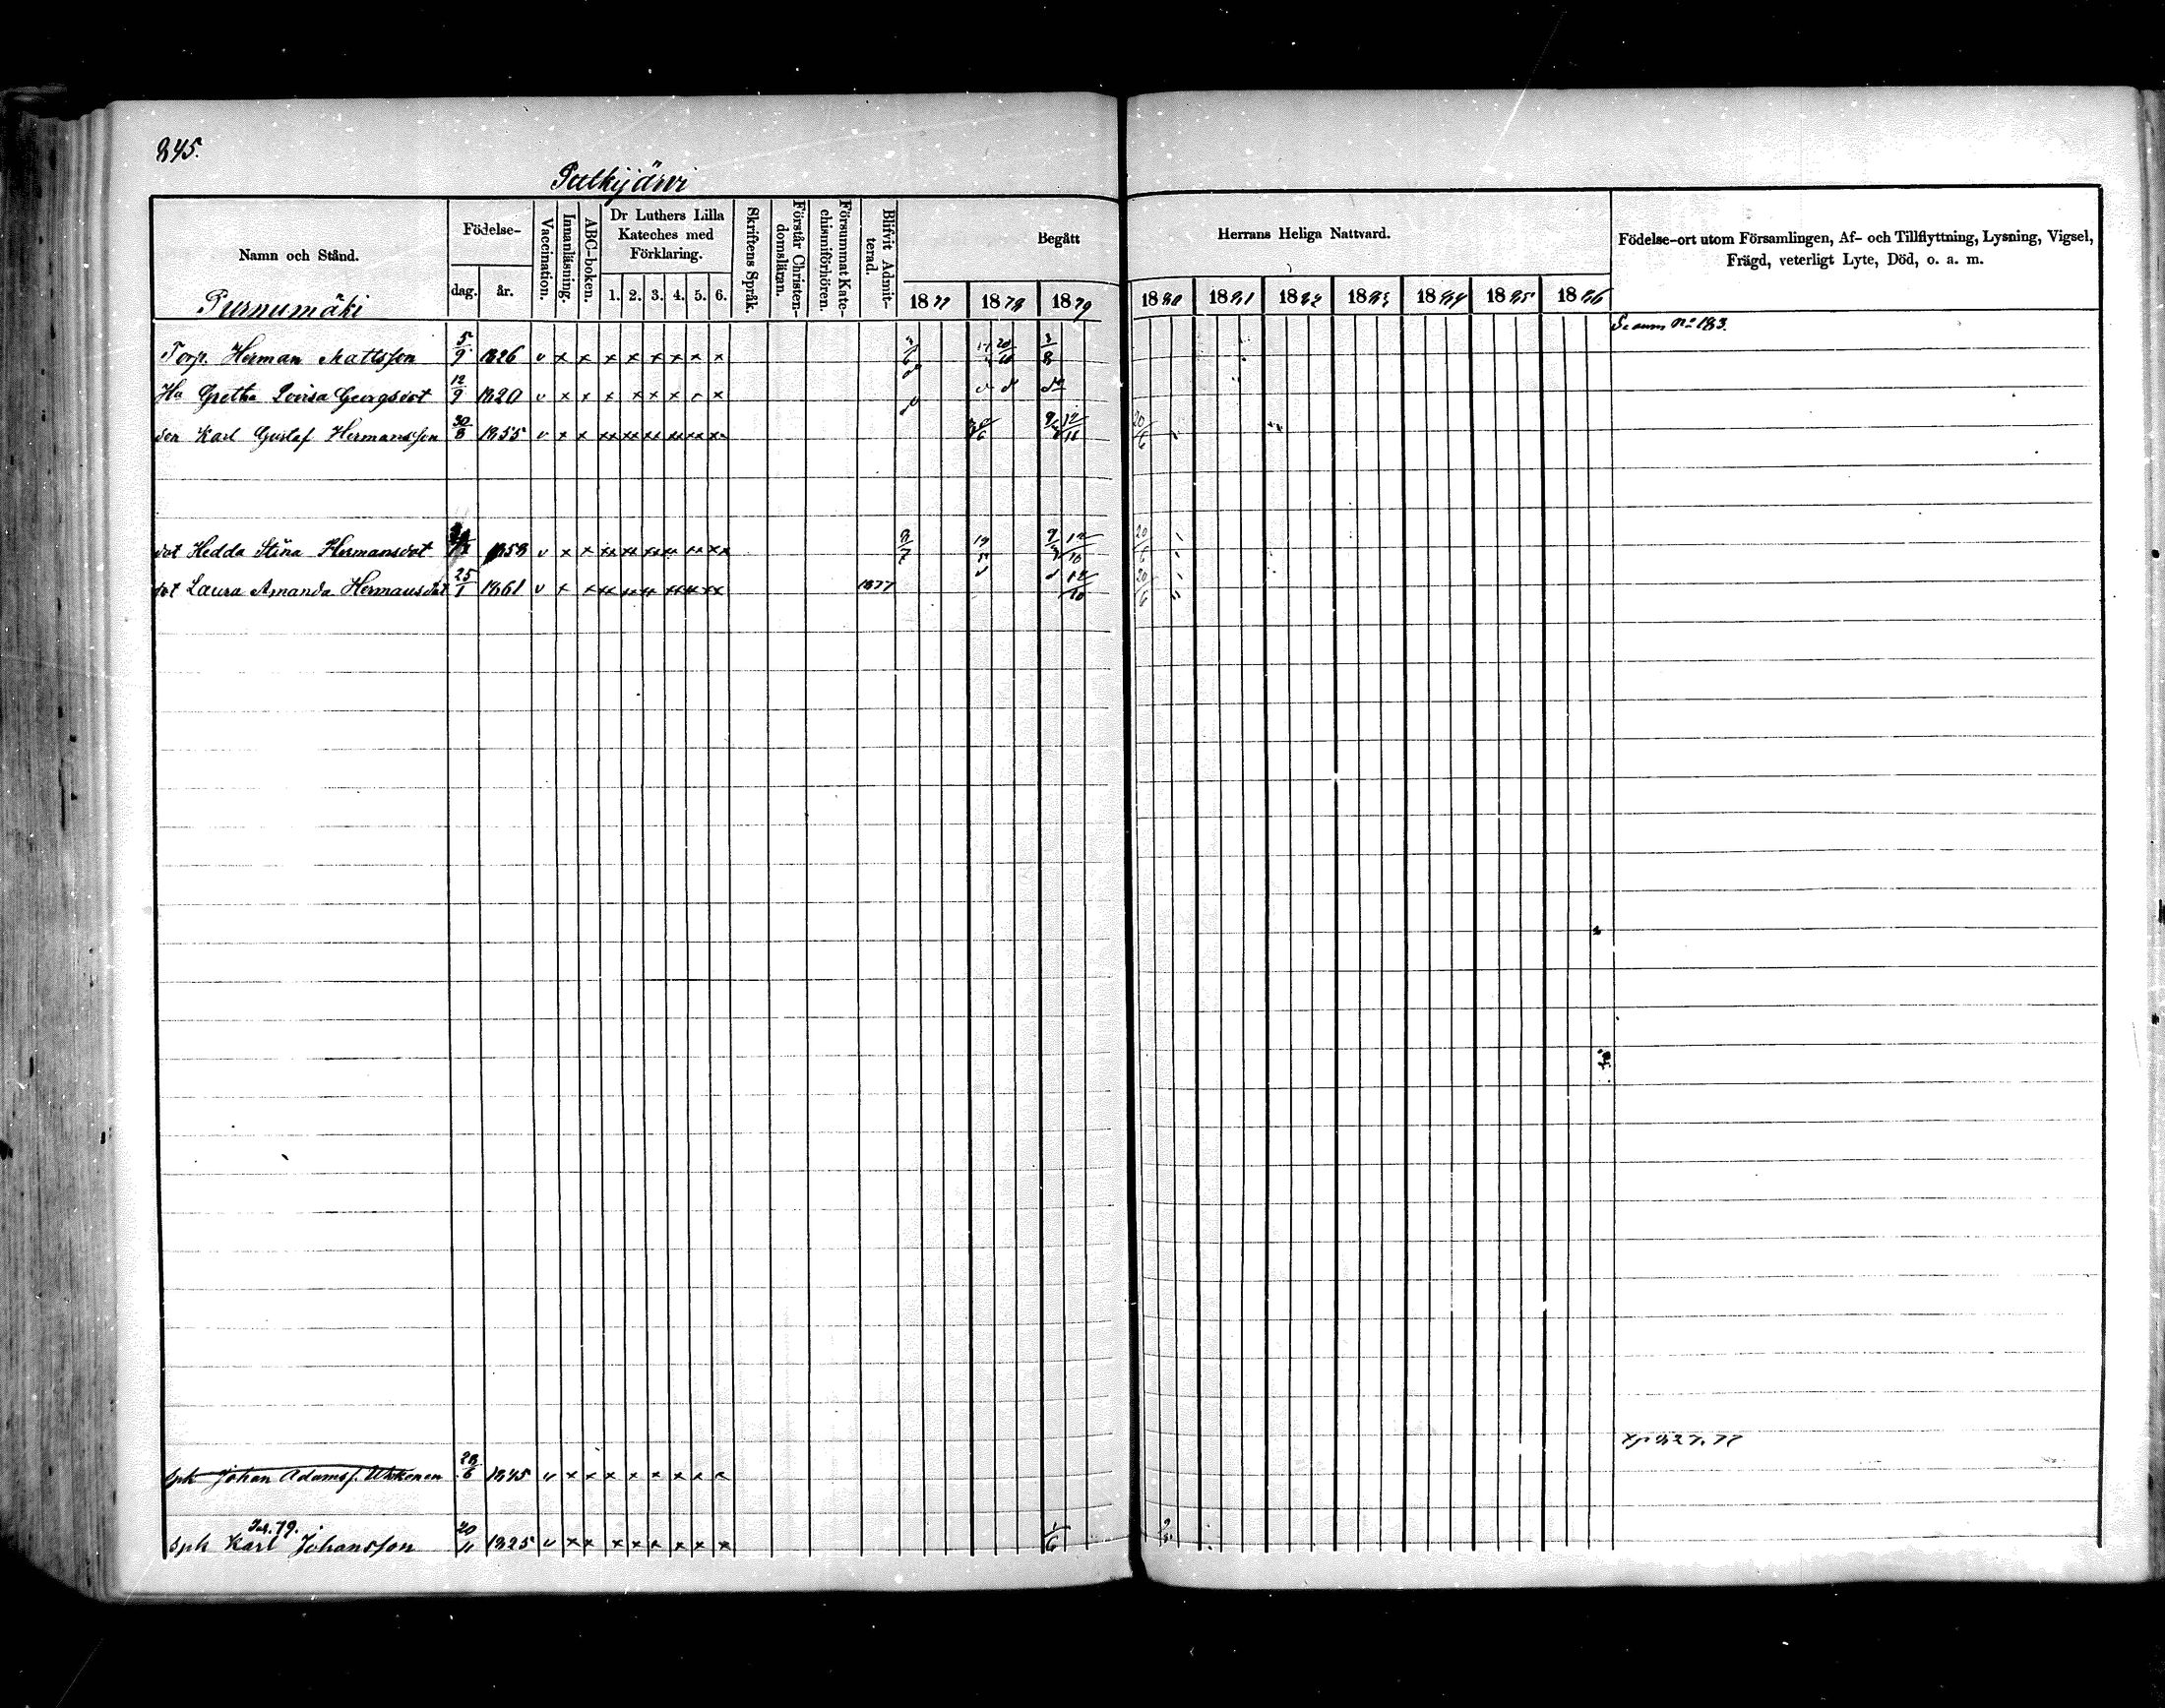 845.
Pulkijärvi
Namn och Stånd.
Födelse-
dag.
år.
Vaccination.
Innanläsning.
ABC-boken.
Dr Luthers Lilla
Kateches med
Förklaring.
1. 2. 3. 4. 5. 6.
Skriftens Språk.
Förstår Christen-
domsläran.
Försummat Kate-
chismiförhören.
Blifvit Admit-
terad.
Begått
Herrans Heliga Nattvard.
1877 1878 1879 1880 1881 1882 1883 1884 1885 1886
Födelse-ort utom Församlingen, Af- och Tillflyttning, Lysning, Vigsel,
Frägd, veterligt Lyte, Död, o. a. m.
Purnumäki
Torp. Herman Mattsson 5/9 1826 v x x x x x x x x 20/10
Hu Gretha Lovisa Georgsdot 12/9 1820 v x x x x x x x
son Karl Gustaf Hermansson 30/8 1855 v x x xx xx xx xx xx xx 12/11 20/6
dot Hedda Stina Hermansdot 1858 v x x xx xx xx xx xx xx 8/7 20/6
dot Laura Amanda Hermansdot 25/1 1861 v x x xx xx xx xx xx xx 1877 12/10 20/6
sph Johan Adamsf. Ukkonen 28/6 1845 v x x x x x x x x
sph Karl Johansson 20/11 1825 v x x x x x x x x 1/6